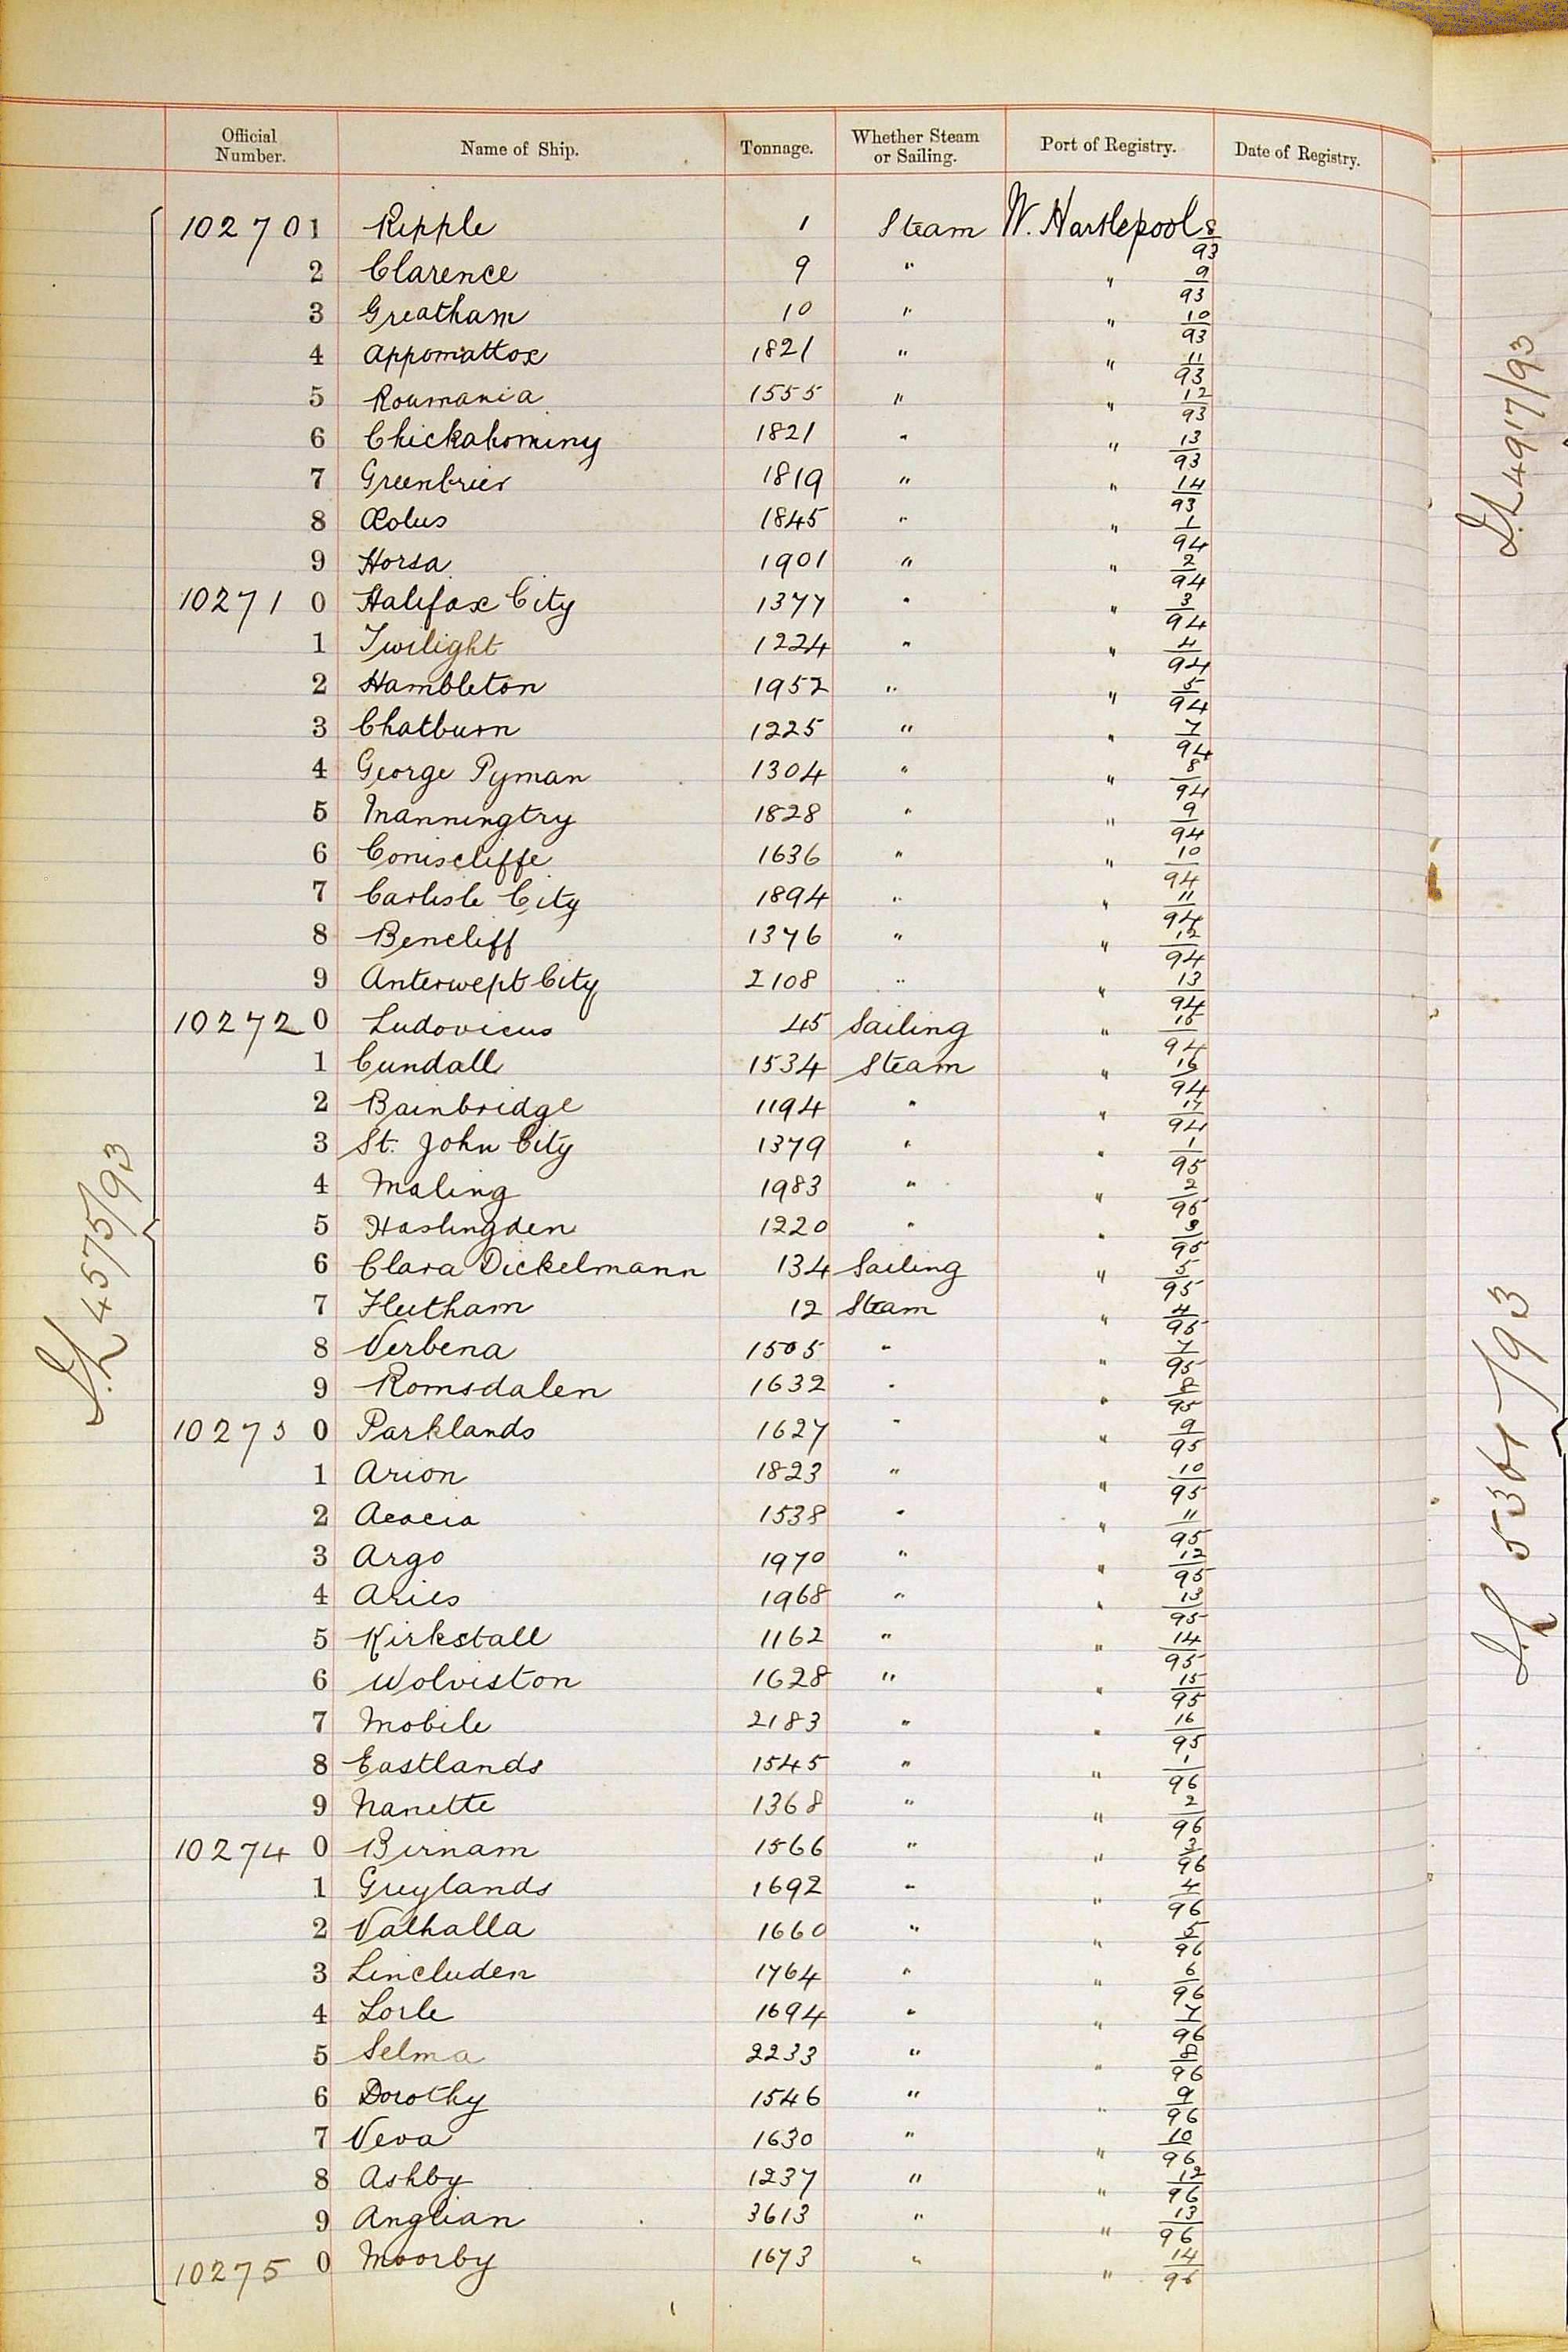 Official Number. Name of Ship. Tonnage. Whether Steam or Sailing. Port of Registry. Date of Registry.
102701 Ripple 1 Steam W. Hartlepool 8/93
2 Clarence 9 " " 9/93
3 Greatham 10 " " 10/93
4 Appomattox 1821 " " 11/93
5 Roumania 1555 " " 12/93
6 Chickahominy 1821 " " 13/93
7 Greenbrier 1819 " " 14/93
8 Œolus 1845 " " 1/94
9 Horsa 1901 " " 2/94
10271 0 Halifax City 1377 " " 3/94
1 Twilight 1224 " " 4/94
2 Hambleton 1952 " " 5/94
3 Chatburn 1225 " " 7/94
4 George Pyman 1304 " " 8/94
5 Manningtry 1828 " " 9/94
6 Coniscliffe 1636 " " 10/94
7 Carlisle City 1894 " " 11/94
8 Bencliff 1376 " " 12/94
9 Anterwept City 2108 " " 13/94
10272 0 Ludovicus 45 Sailing " 15/94
1 Cundall 1534 Steam " 16/94
2 Bainbridge 1194 " " 17/94
3 St. John City 1379 " " 1/95
4 Maling 1983 " " 2/95
5 Haslingden 1220 " " 3/95
6 Clara Dickelmann 134 Sailing " 5/95
7 Flutham 12 Steam " 4/95
8 Verbena 1505 " " 7/95
9 Romsdalen 1632 " " 8/95
10273 0 Parklands 1627 " " 9/95
1 Arion 1823 " " 10/95
2 Acacia 1538 " " 11/95
3 Argo 1970 " " 12/95
4 Aries 1968 " " 13/95
5 Kirkstall 1162 " " 14/95
6 Wolviston 1628 " " 15/95
7 Mobile 2183 " " 16/95
8 Eastlands 1545 " " 1/96
9 Nanette 1368 " " 2/96
10274 0 Birnam 1566 " " 3/96
1 Greylands 1692 " " 4/96
2 Valhalla 1660 " " 5/96
3 Lincluden 1764 " " 6/96
4 Lorle 1694 " " 7/96
5 Selma 2233 " " 8/96
6 Dorothy 1546 " " 9/96
7 Veva 1630 " " 10/96
8 Ashby 1237 " " 12/96
9 Anglian 3613 " " 13/96
10275 0 Moorby 1673 " " 14/96
4575/93
4917/93